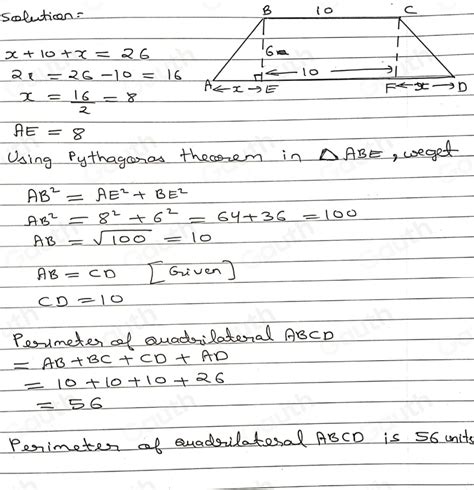 Solution:-
B 10 C
x + 10 + x = 26
6
2x = 26 - 10 = 16
10
x = 16/2 = 8
A x E F x D
AE = 8
Using Pythagoras theorem in △ ABE, we get
AB² = AE² + BE²
AB² = 8² + 6² = 64 + 36 = 100
AB = √100 = 10
AB = CD [Given]
CD = 10
Perimeter of quadrilateral ABCD
= AB + BC + CD + AD
= 10 + 10 + 10 + 26
= 56
Perimeter of quadrilateral ABCD is 56 units